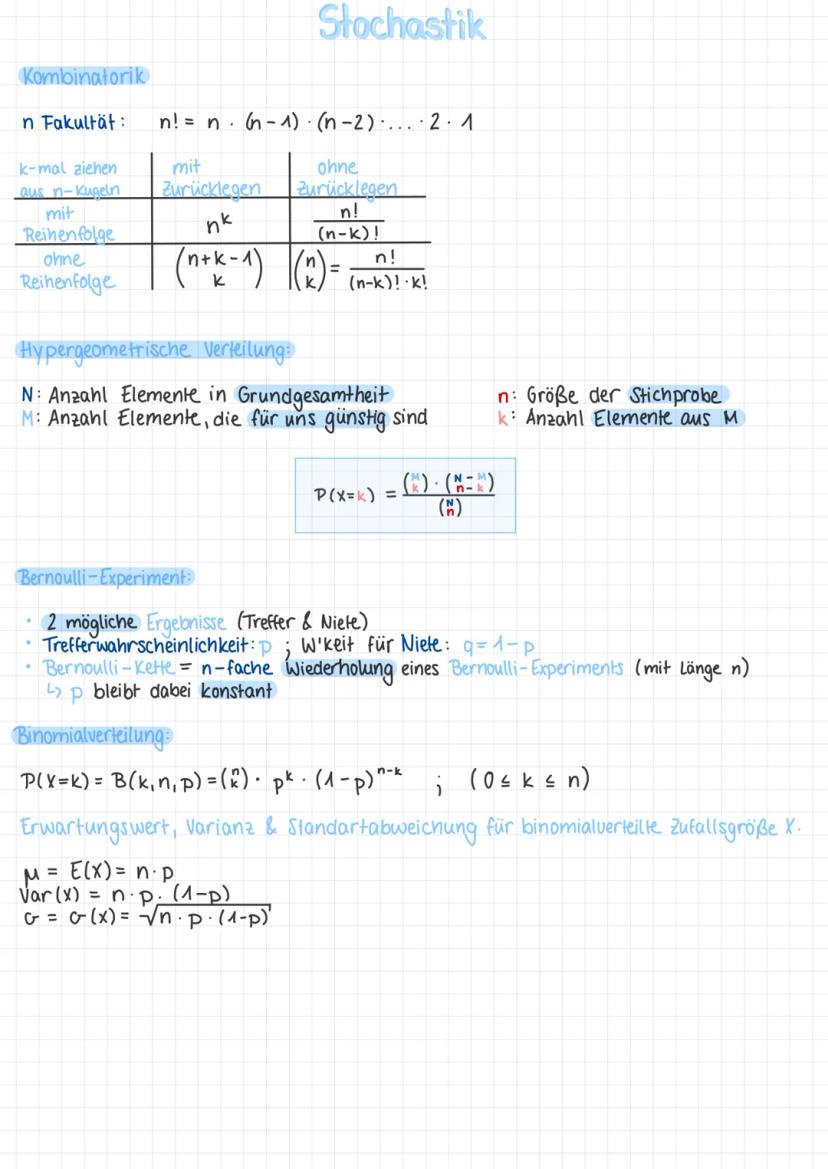 Stochastik
Kombinatorik
n Fakultät: n! = n · (n-1) · (n-2) · ... · 2 · 1
k-mal ziehen aus n-Kugeln | mit Zurücklegen | ohne Zurücklegen
mit Reihenfolge | n^k | n! / (n-k)!
ohne Reihenfolge | (n+k-1 über k) | (n über k) = n! / ((n-k)! · k!)
Hypergeometrische Verteilung:
N: Anzahl Elemente in Grundgesamtheit
M: Anzahl Elemente, die für uns günstig sind
n: Größe der Stichprobe
k: Anzahl Elemente aus M
P(X=k) = (M über k) · (N-M über n-k) / (N über n)
Bernoulli-Experiment:
• 2 mögliche Ergebnisse (Treffer & Niete)
• Trefferwahrscheinlichkeit: p ; W'keit für Niete: q = 1-p
• Bernoulli-Kette = n-fache Wiederholung eines Bernoulli-Experiments (mit Länge n)
↳ p bleibt dabei konstant
Binomialverteilung:
P(X=k) = B(k,n,p) = (n über k) · p^k · (1-p)^n-k ; (0 ≤ k ≤ n)
Erwartungswert, Varianz & Standartabweichung für binomialverteilte Zufallsgröße X.
μ = E(X) = n·p
Var(X) = n·p·(1-p)
σ = σ(X) = √n·p·(1-p)